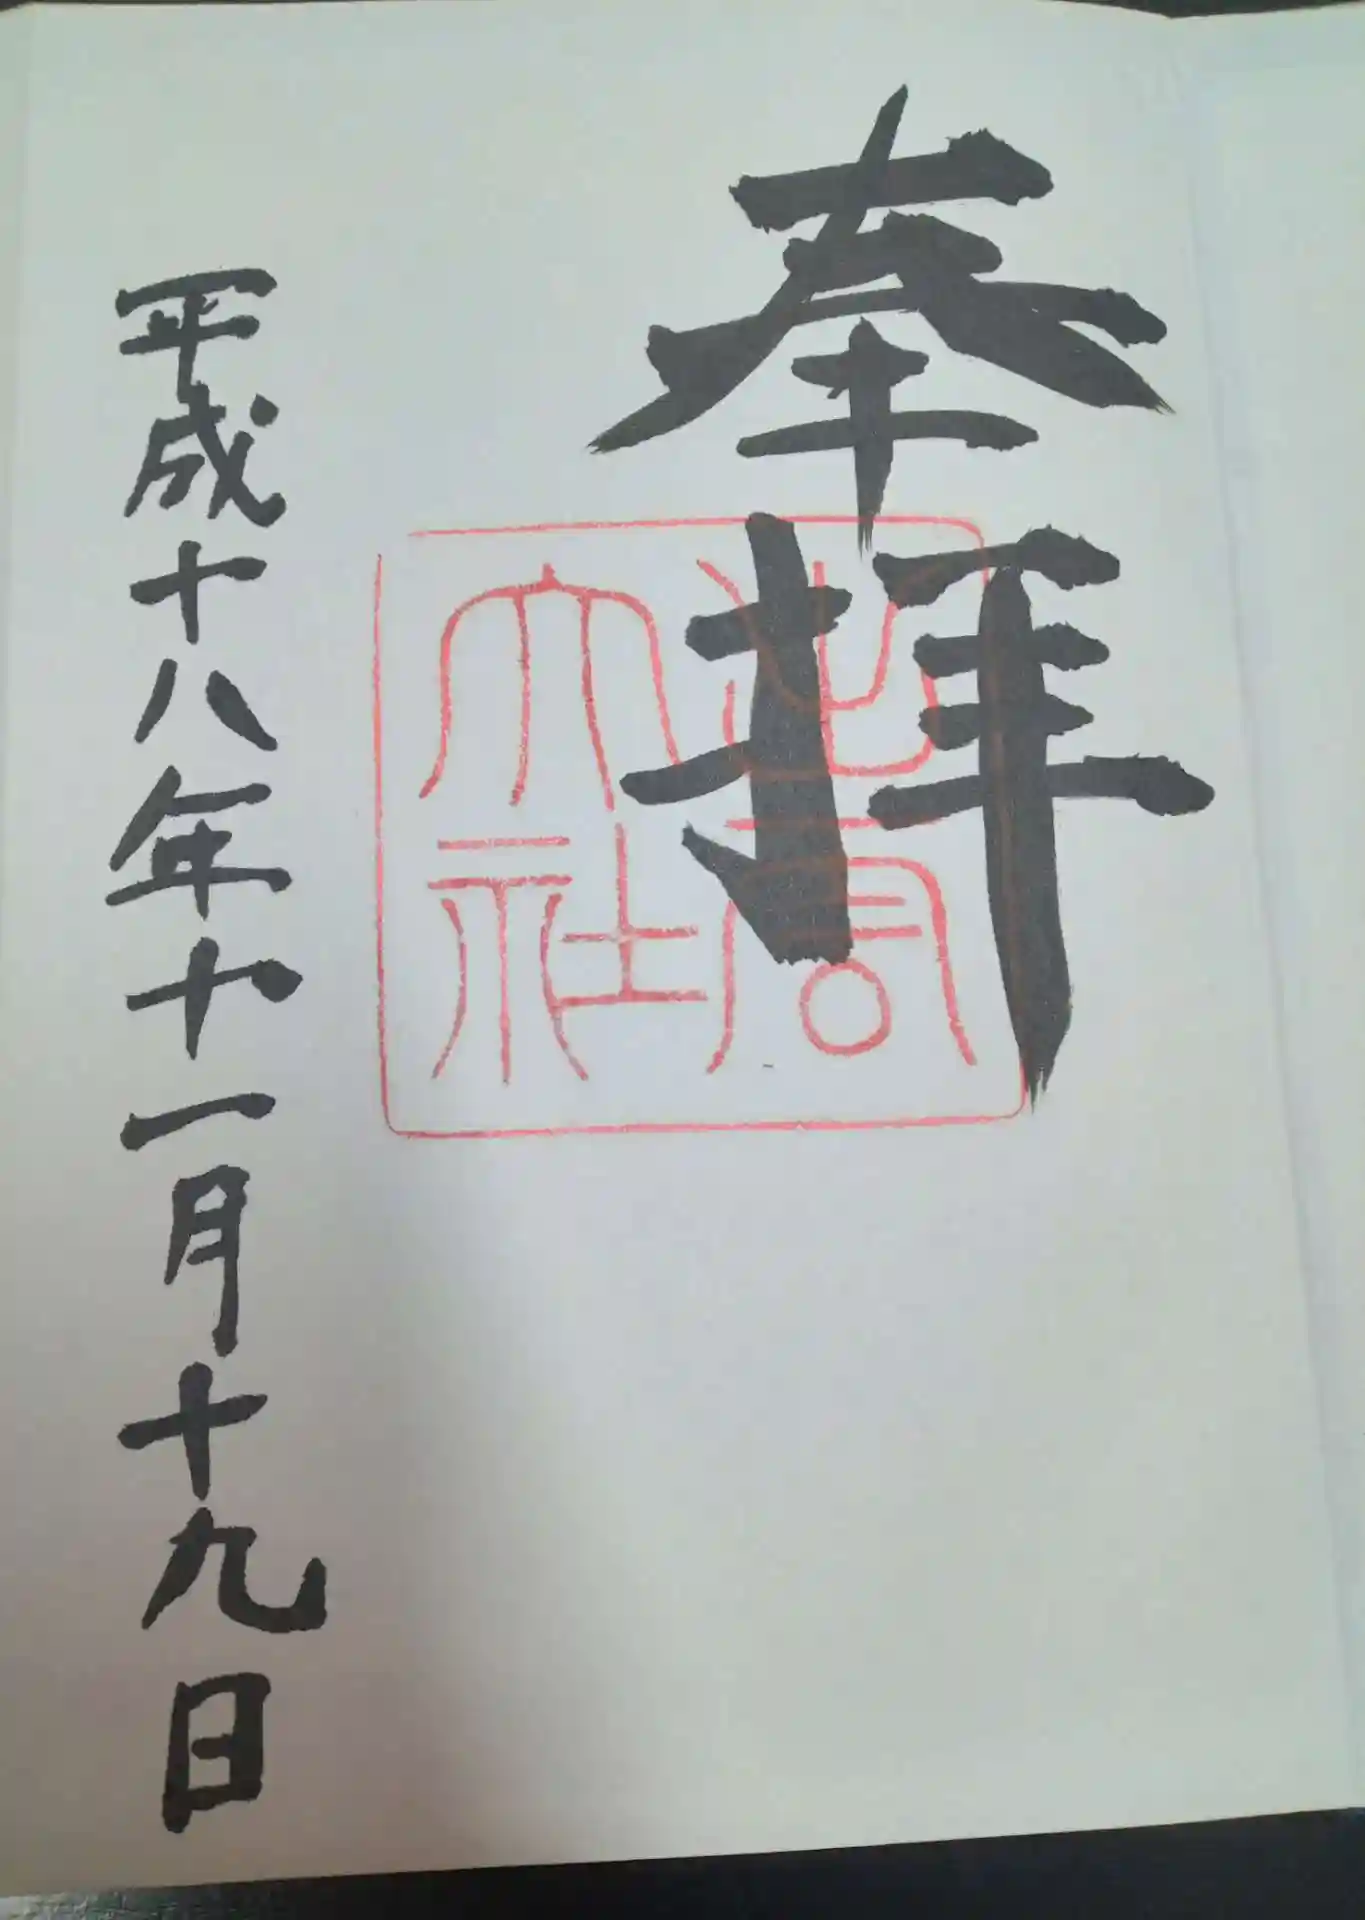 奉拝
出雲
大社
平成十八年十一月十九日